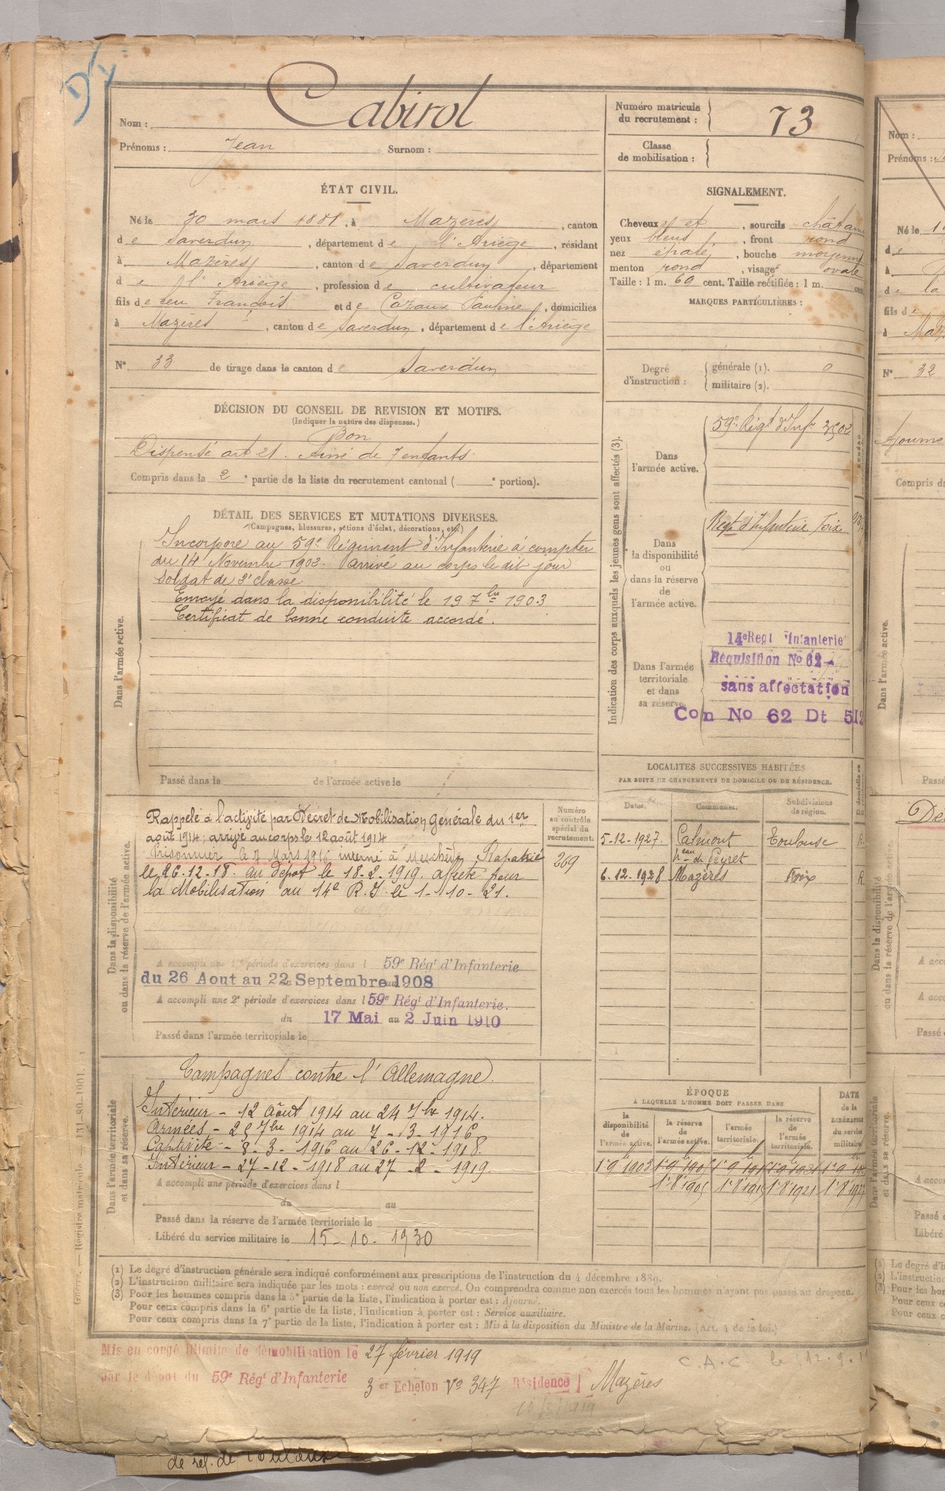 Nom : Cabirol
Prénoms : Jean Surnom :
Numéro matricule du recrutement : 73
Classe de mobilisation :
ÉTAT CIVIL.
Né le 30 mars 1881, à Mazères, canton
de Saverdun, département de l'Ariège, résidant
à Mazères, canton de Saverdun, département
de l'Ariège, profession de cultivateur
fils de feu François et de Cazaux Pauline, domiciliés
à Mazères, canton de Saverdun, département de l'Ariège
N° 33 de tirage dans le canton de Saverdun
SIGNALEMENT.
Cheveux et sourcils châtain
yeux bleus, front rond
nez épaté, bouche moyenne
menton rond, visage ovale
Taille : 1 m. 69 cent. Taille rectifiée : 1 m. cent
MARQUES PARTICULIÈRES :
Degré d'instruction : générale (1). 0
militaire (2).
DÉCISION DU CONSEIL DE REVISION ET MOTIFS.
(Indiquer la nature des dispenses.)
Bon
Dispensé art 21. Ainé de 7 enfants
Compris dans la 2e partie de la liste du recrutement cantonal ( e portion).
DÉTAIL DES SERVICES ET MUTATIONS DIVERSES.
(Campagnes, blessures, actions d'éclat, décorations, etc.)
Dans l'armée active.
Incorporé au 59e Régiment d'Infanterie à compter
du 14 Novembre 1902. Arrivé au corps le dit jour
soldat de 2e classe
Envoyé dans la disponibilité le 19 7bre 1903
Certificat de bonne conduite accordé.
Passé dans la de l'armée active le
Indication des corps auxquels les jeunes gens sont affectés (3).
Dans l'armée active.
59e Régt d'Inf
Dans la disponibilité ou dans la réserve de l'armée active.
Régt d'Infanterie Foix
Dans l'armée territoriale et dans sa réserve
14e Regt Infanterie
Requisition No 62
sans affectation
Con No 62 Dt 512
LOCALITÉS SUCCESSIVES HABITÉES
PAR SUITE DE CHANGEMENTS DE DOMICILE OU DE RÉSIDENCE.
Dates. Communes. Subdivisions de région.
5.12.1927. Calmont Toulouse
de Peyret
6.12.1928 Mazères Foix
Dans la disponibilité ou dans la réserve de l'armée active.
Numéro au contrôle spécial du recrutement.
269
Rappelé à l'activité par Décret de Mobilisation Générale du 1er
août 1914, arrivé au corps le 12 août 1914
Prisonnier le 8 Mars 1916 interné à Meschede Rapatrié
le 26-12-18. au dépôt le 18-2-1919. affecté pour
la Mobilisation au 14e R.I. le 1-10-21.
A accompli une 1re période d'exercices dans l 59e Régt d'Infanterie
du 26 Aout au 22 Septembre 1908
A accompli une 2e période d'exercices dans l 59e Régt d'Infanterie.
du 17 Mai au 2 Juin 1910
Passé dans l'armée territoriale le
Dans l'armée territoriale et dans sa réserve.
Campagnes contre l'Allemagne.
Intérieur - 12 Août 1914 au 24 7bre 1914.
Armées - 25 7bre 1914 au 7-3-1916
Captivité - 8-3-1916 au 26-12-1918.
Intérieur - 27-12-1918 au 27-2-1919.
A accompli une période d'exercices dans l
du au
Passé dans la réserve de l'armée territoriale le
Libéré du service militaire le 15-10-1930
ÉPOQUE
À LAQUELLE L'HOMME DOIT PASSER DANS
la disponibilité de l'armée active. la réserve de l'armée active. l'armée territoriale. la réserve de l'armée territoriale.
DATE de la libération du service militaire
(1) Le degré d'instruction générale sera indiqué conformément aux prescriptions de l'instruction du 4 décembre 1889.
(2) L'instruction militaire sera indiquée par les mots : exercé ou non exercé. On comprendra comme non exercés tous les hommes n'ayant pas passé au drapeau.
(3) Pour les hommes compris dans la 5e partie de la liste, l'indication à porter est : Ajourné.
Pour ceux compris dans la 6e partie de la liste, l'indication à porter est : Service auxiliaire.
Pour ceux compris dans la 7e partie de la liste, l'indication à porter est : Mis à la disposition du Ministre de la Marine. (Art. 4 de la loi.)
Mis en congé illimité de démobilisation le 27 février 1919
par le dépôt du 59e Régt d'Infanterie 3er Echelon No 347 Résidence Mazères
C.A.C. le
de rel. de Toulouse
Nom :
Prénoms :
N° 32